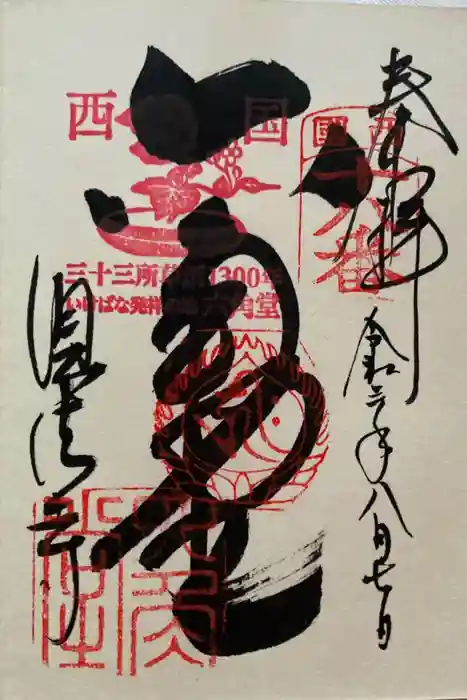 奉拝
令和二年八月七日
西国
十八番
西国
三十三所草創1300年
いけばな発祥の地 六角堂
六角堂
頂法寺